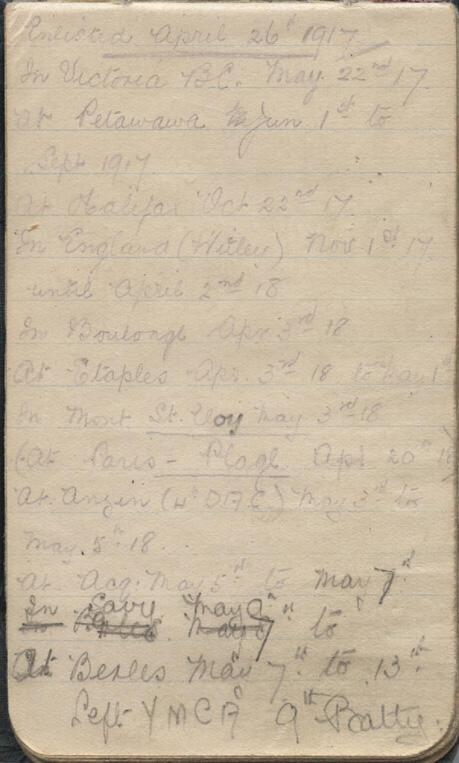 Enlisted April 26th 1917
In Victoria B.C. May 22nd 17
At Petawawa Jun 1st to
Sept 1917
At Halifax Oct 22nd 17
In England (Witley) Nov 1st 17
until April 2nd 18
In Boulongk Apr 3rd 18
At Etaples Apr. 3rd 18 to May 1st
In Mont St. Eloy May 3rd 18
(At Paris-Plage Apl 20th 18)
At Anzin (4th D.A.C) May 3rd to
May 5th 18.
At Acq. May 5th to May 7th
In Savy May 9th
May 7th to
At Berles May 7th to 13th
Left YMCA 9th Batty.